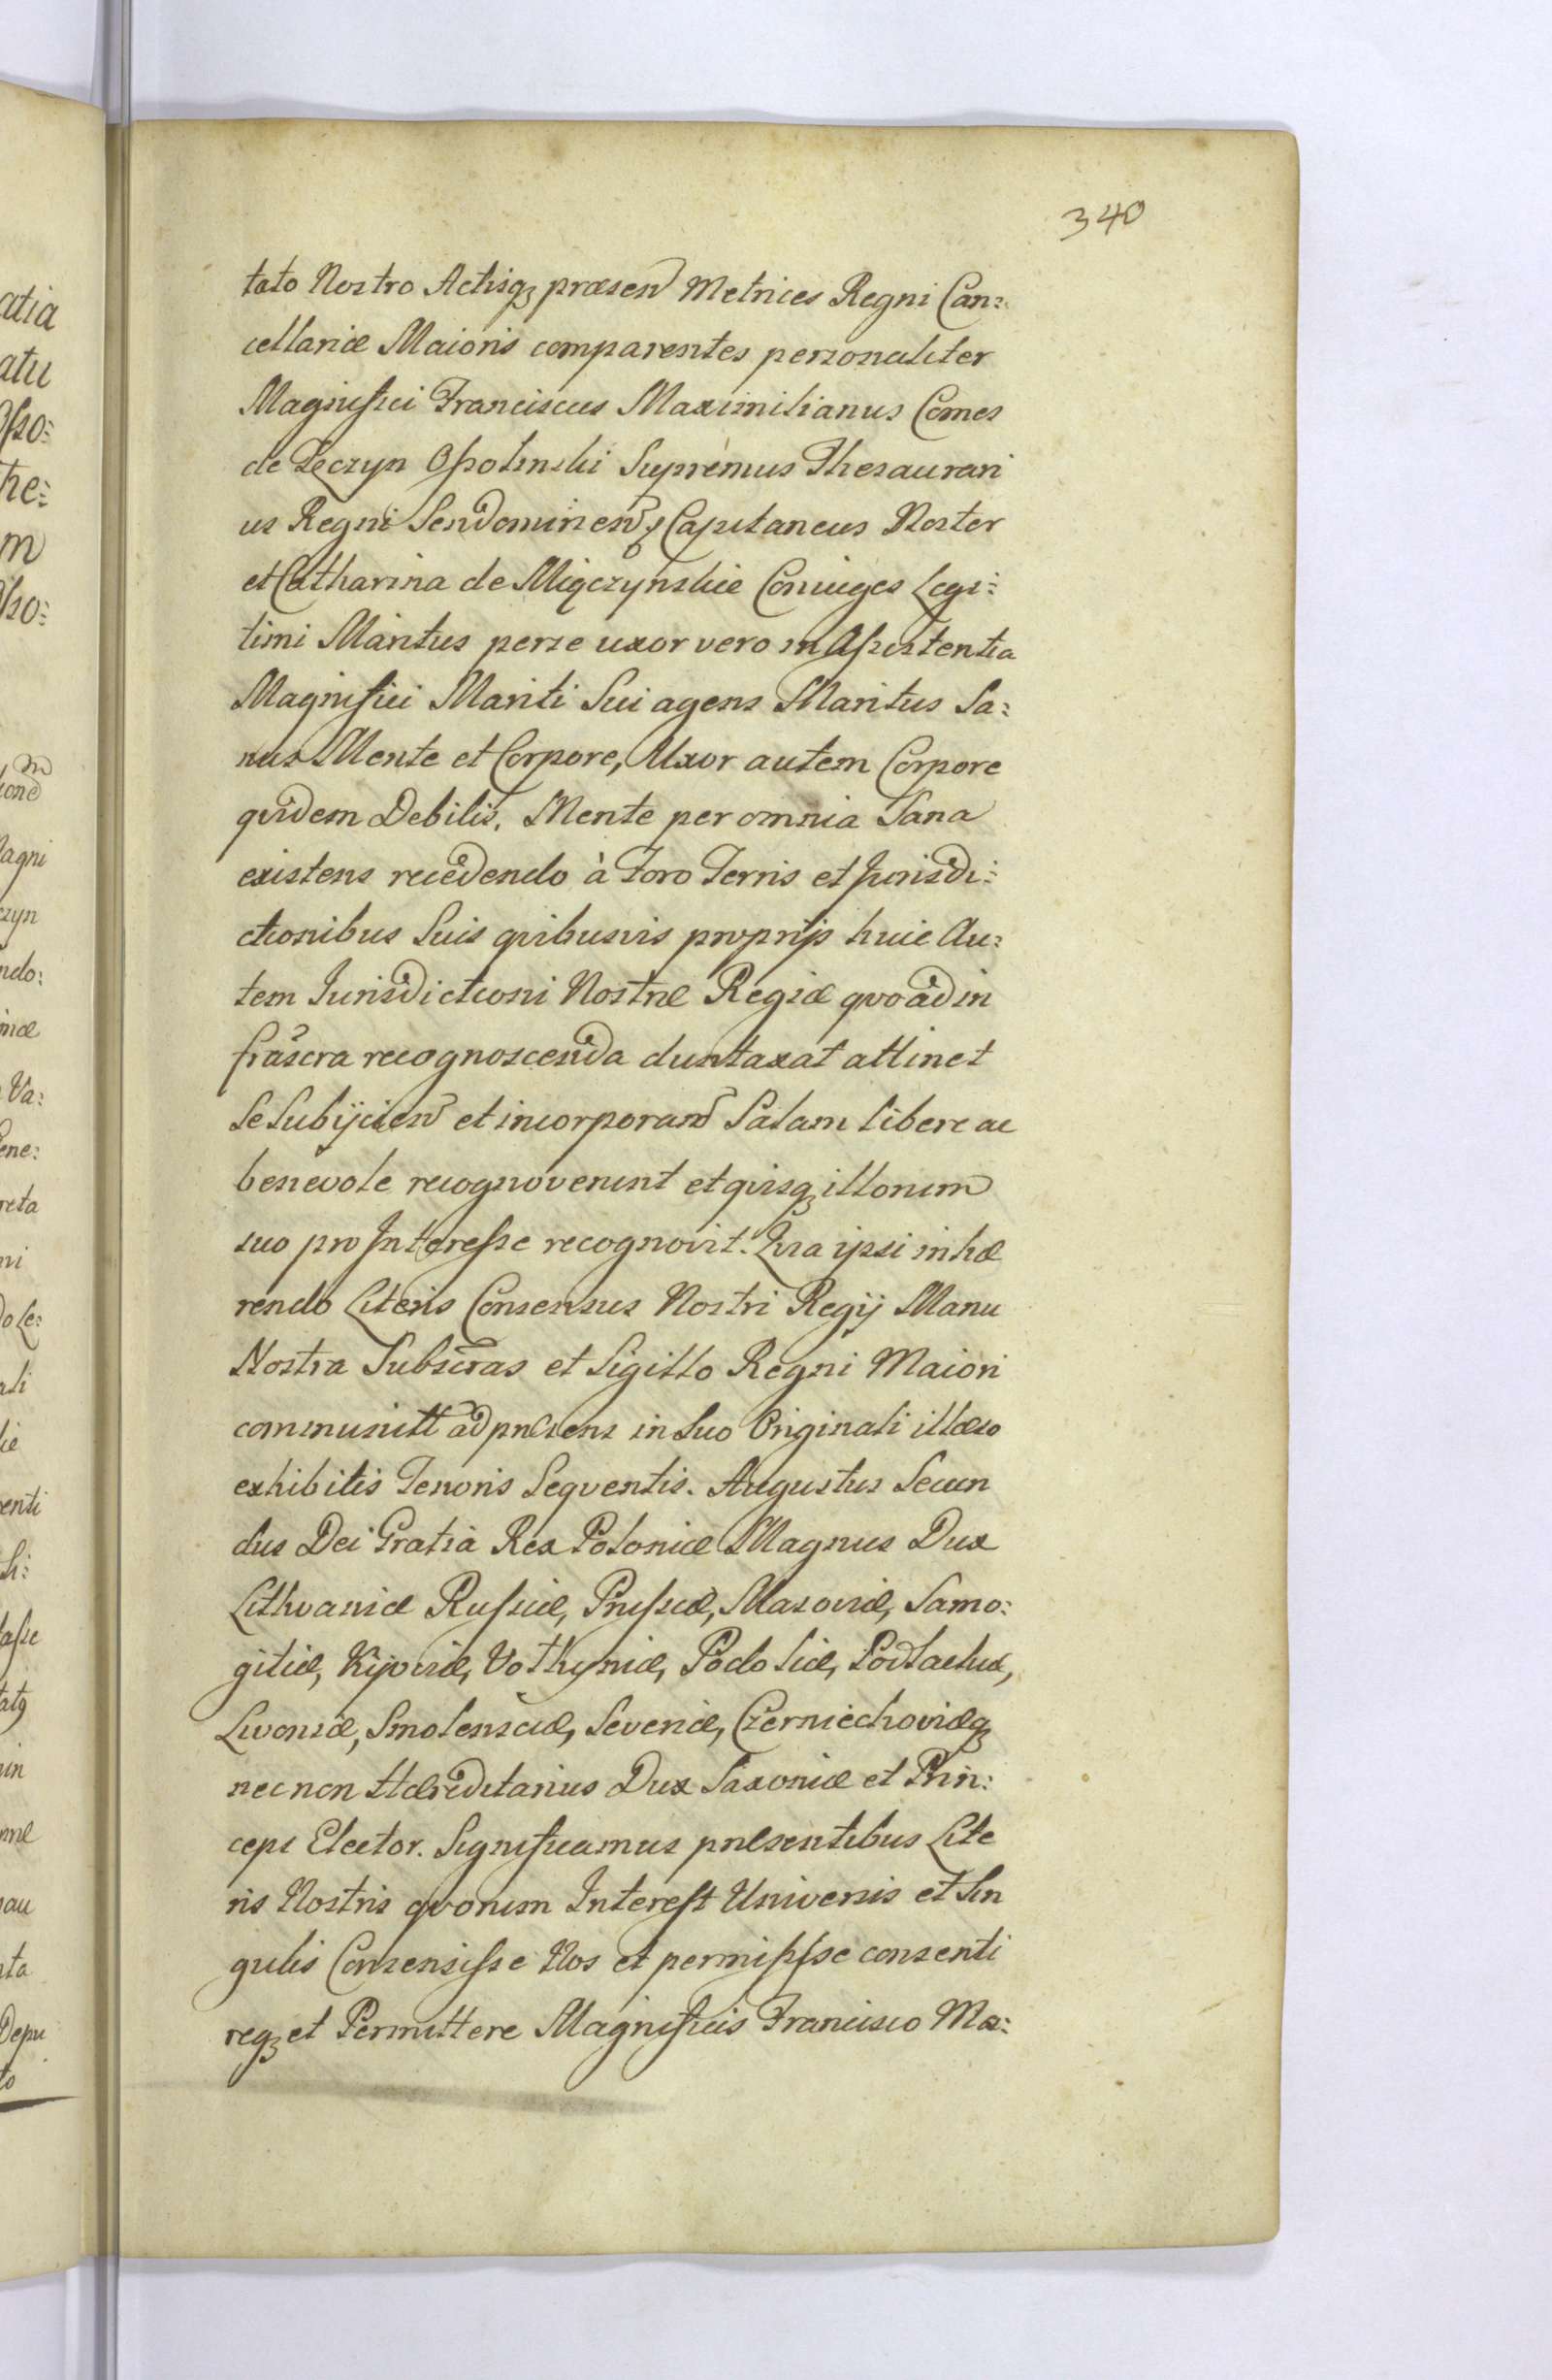 340
tato Nostro Actisq₃ præsen Metrices Regni Can:
cellariæ Maioris comparentes personaliter
Magnifici Franciscus Maximilianus Comes
de Tęczyn Ossolinski Supremus Thesaurari
us Regni Sendominen Capitaneus Noster
et Catharina de Miączynskie Coniuges Legi:
timi Maritus perse uxor vero in Assistentia
Magnifici Mariti Sui agens Maritus Sa:
nus Mente et Corpore, Uxor autem Corpore
quidem Debilis, Mente per omnia Sana
existens recedendo à Foro Terris et Jurisdi:
ctionibus Suis quibusvis proprijs huic Au:
tem Jurisdictioni Nostræ Regiæ quoad in
frascra recognoscenda duntaxat attinet
Se Subijcien et incorporan Palam libere ac
benevole recognoverunt et quisq₃ illorum
suo pro Interesse recognovit. Quia ipsi inhæ
rendo Literis Consensus Nostri Regij Manu
Nostra Subscras et Sigillo Regni Maiori
communitt ad præsens in Suo Originali illæso
exhibitis Tenoris Sequentis. Augustus Secun
dus Dei Gratia Rex Poloniæ Magnus Dux
Lithvaniæ Russiæ, Prussiæ, Masoviæ, Samo:
gitiæ, Kijoviæ, Volhyniæ, Podoliæ, Podlachiæ,
Livoniæ, Smolensciæ, Severiæ, Czerniechoviæq₃
nec non Hæreditarius Dux Saxoniæ et Prin:
ceps Elector. Significamus præsentibus Lite
ris Nostris quorum Interest Universis et Sin
gulis Consensisse Nos et permisisse consenti
req₃ et Permittere Magnificis Francisco Ma: